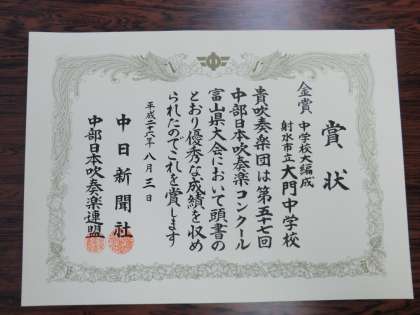 賞状
金賞 中学校大編成
射水市立大門中学校
貴吹奏楽団は第五十七回
中部日本吹奏楽コンクール
富山県大会において頭書の
とおり優秀な成績を収め
られたのでこれを賞します
平成二十六年八月三日
中日新聞社
中部日本吹奏楽連盟